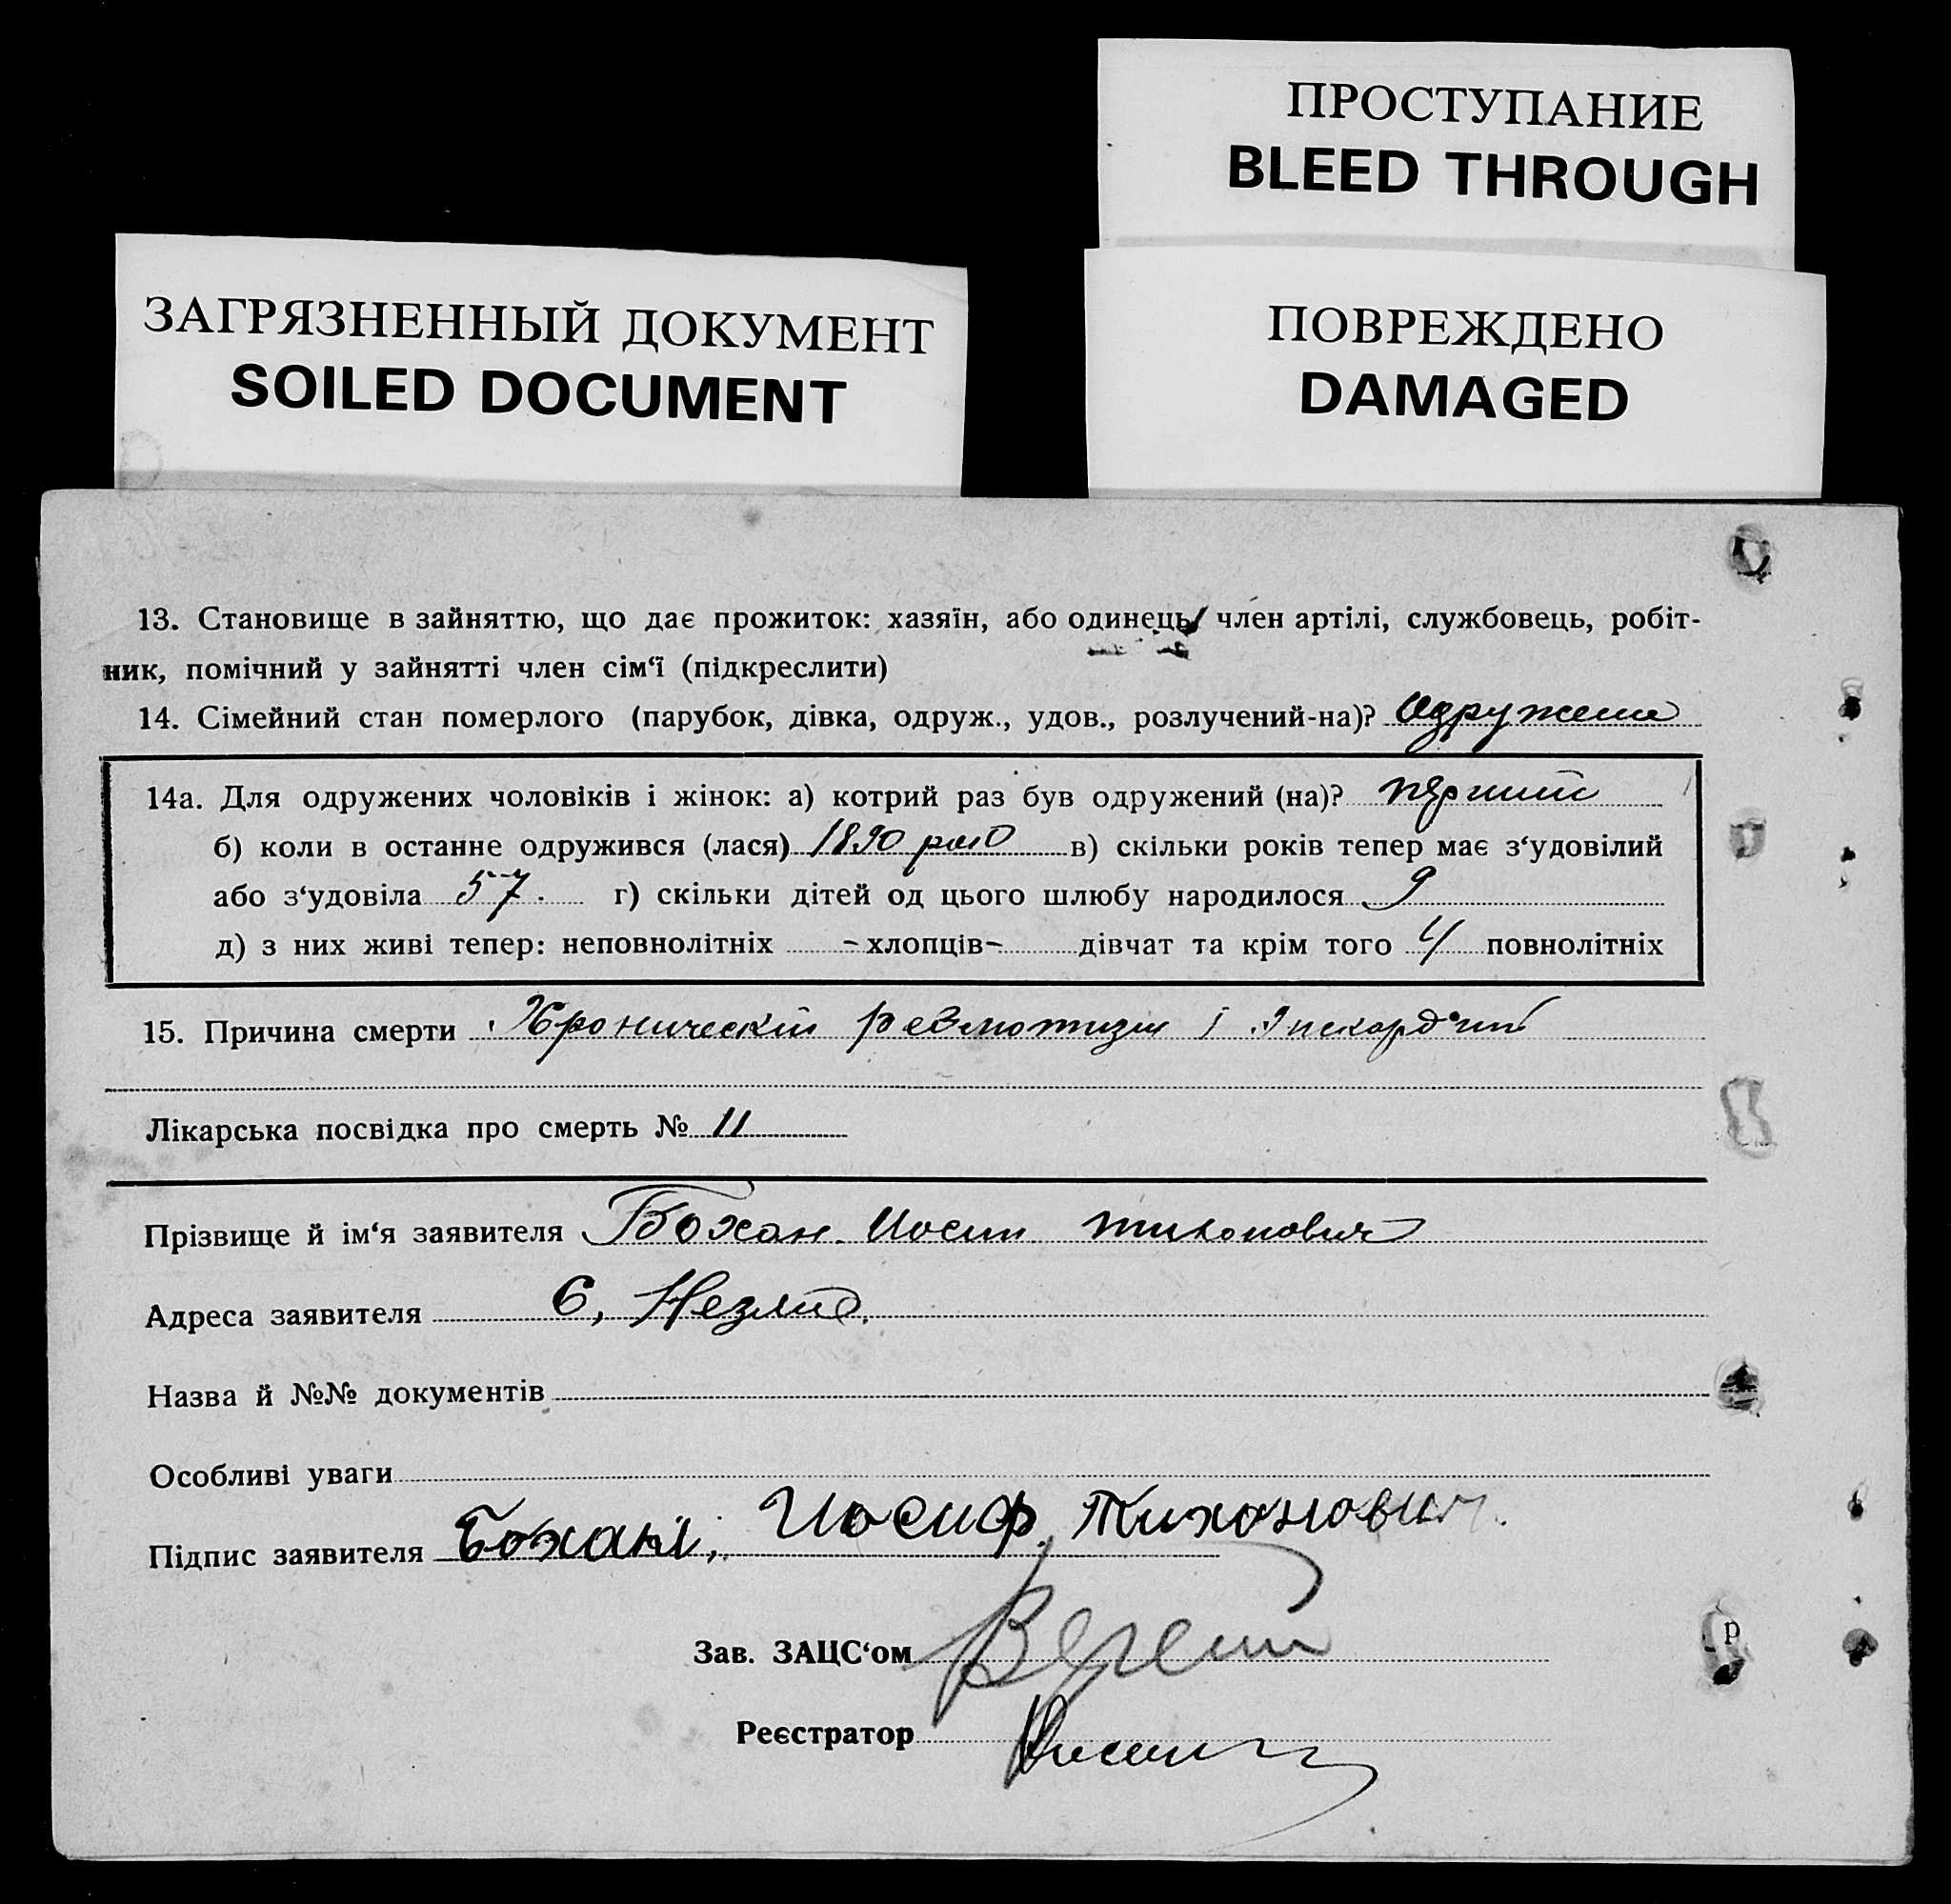 ПРОСТУПАНИЕ
BLEED THROUGH
ЗАГРЯЗНЕННЫЙ ДОКУМЕНТ
SOILED DOCUMENT
ПОВРЕЖДЕНО
DAMAGED
13. Становище в зайняттю, що дає прожиток: хазяїн, або одинець, член артілі, службовець, робіт-
ник, помічний у зайнятті член сім‘ї (підкреслити)
14. Сімейний стан померлого (парубок, дівка, одруж., удов., розлучений-на)? Одружена
14а. Для одружених чоловіків і жінок: а) котрий раз був одружений (на)? перший
б) коли в останне одружився (лася) 1890 в) скільки років тепер має з‘удовілий
або з‘удовіла 57. г) скільки дітей од цього шлюбу народилося 9
д) з них живі тепер: неповнолітніх - хлопців - дівчат та крім того 4 повнолітніх
15. Причина смерти Хроническій ревмотизм і
Лікарська посвідка про смерть № 11
Прізвище й ім‘я заявителя Бохан Иосип Тихонович
Адреса заявителя С,
Назва й №№ документів
Особливі уваги
Підпис заявителя Иосиф Тихонович.
Зав. ЗАЦС‘ом
р
Реєстратор